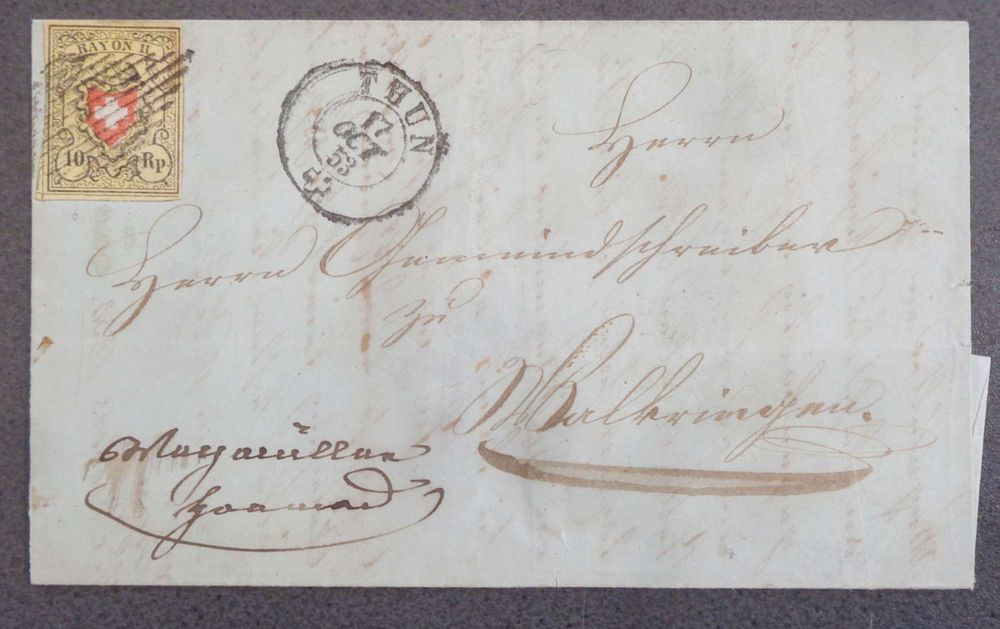 RAYON II.
10 Rp
THUN
17
OCT
53
Herrn
Herrn Gemeindschreiber
zu
Walkringen.